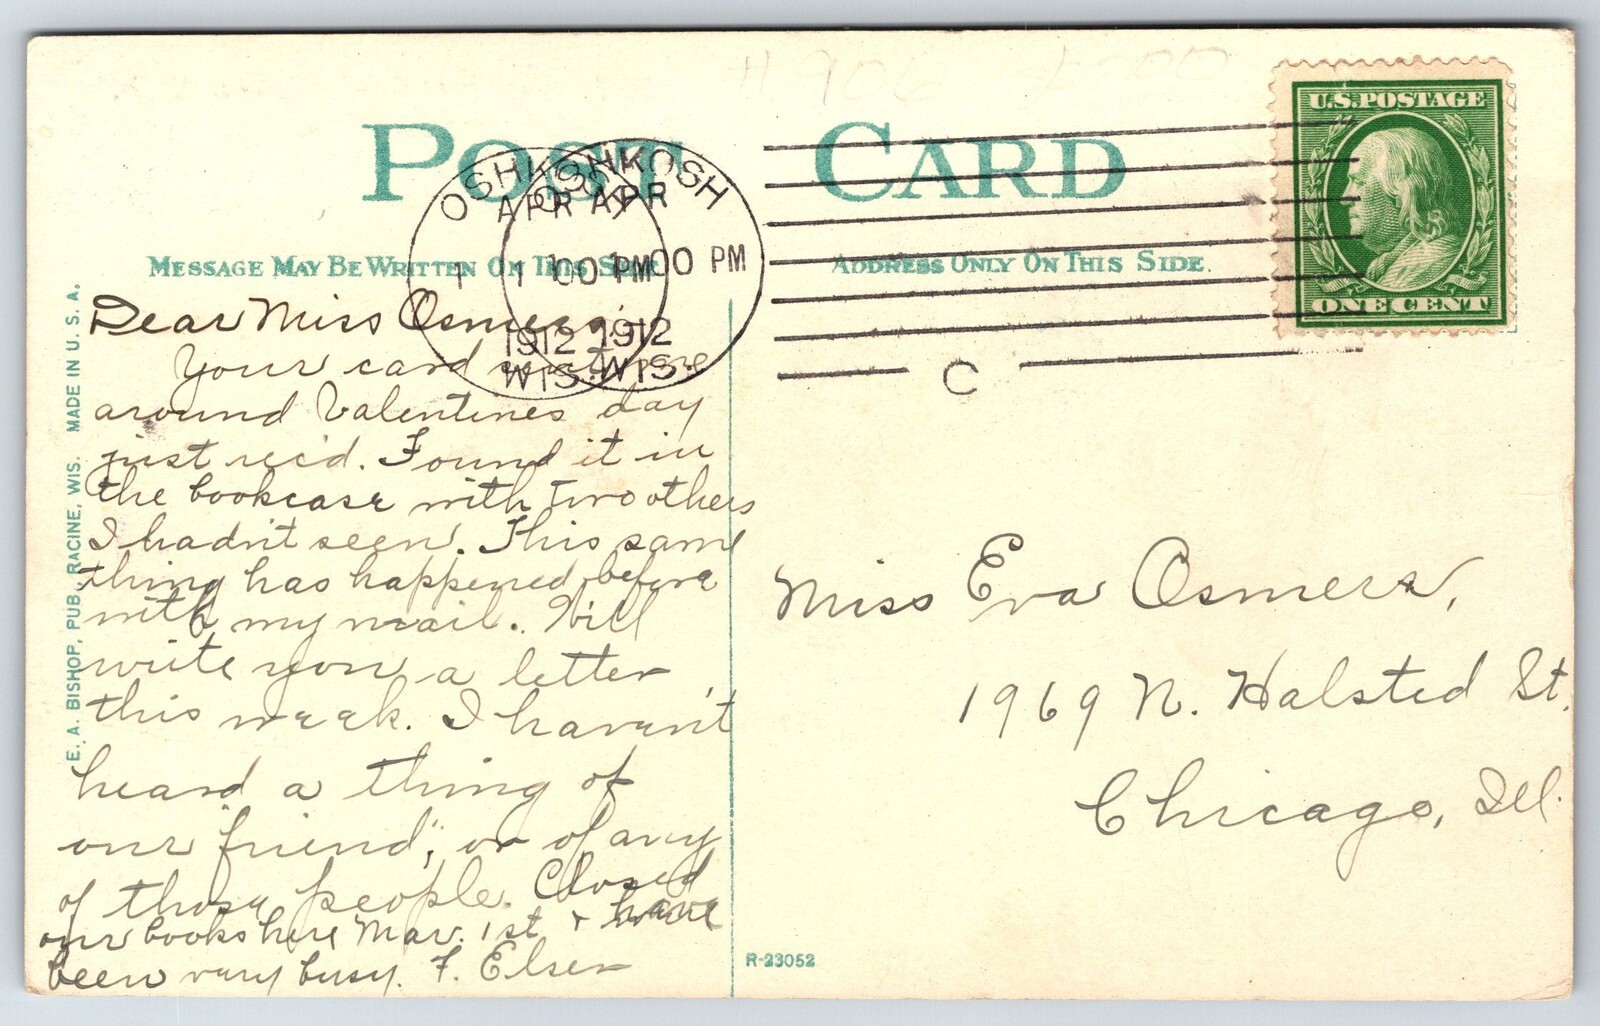 H 906
POST CARD
U.S. POSTAGE
ONE CENT
OSHKOSH OSHKOSH
APR APR
1 1 1 00 PM 1 00 PM
1912 1912
WIS. WIS.
C
MESSAGE MAY BE WRITTEN ON THIS SIDE
ADDRESS ONLY ON THIS SIDE.
E. A. BISHOP, PUB. RACINE, WIS. MADE IN U. S. A.
Dear Miss Osmers:
Your card sent me
around Valentines day
just rec'd. Found it in
the bookcase with two others
I hadn't seen. This same
thing has happened before
with my mail. Will
write you a letter
this week. I haven't
heard a thing of
our "friend", or of any
of those people. Closed
our books here Mar. 1st & have
been very busy. F. Elser
Miss Eva Osmers,
1969 N. Halsted St.
Chicago, Ill.
R-23052